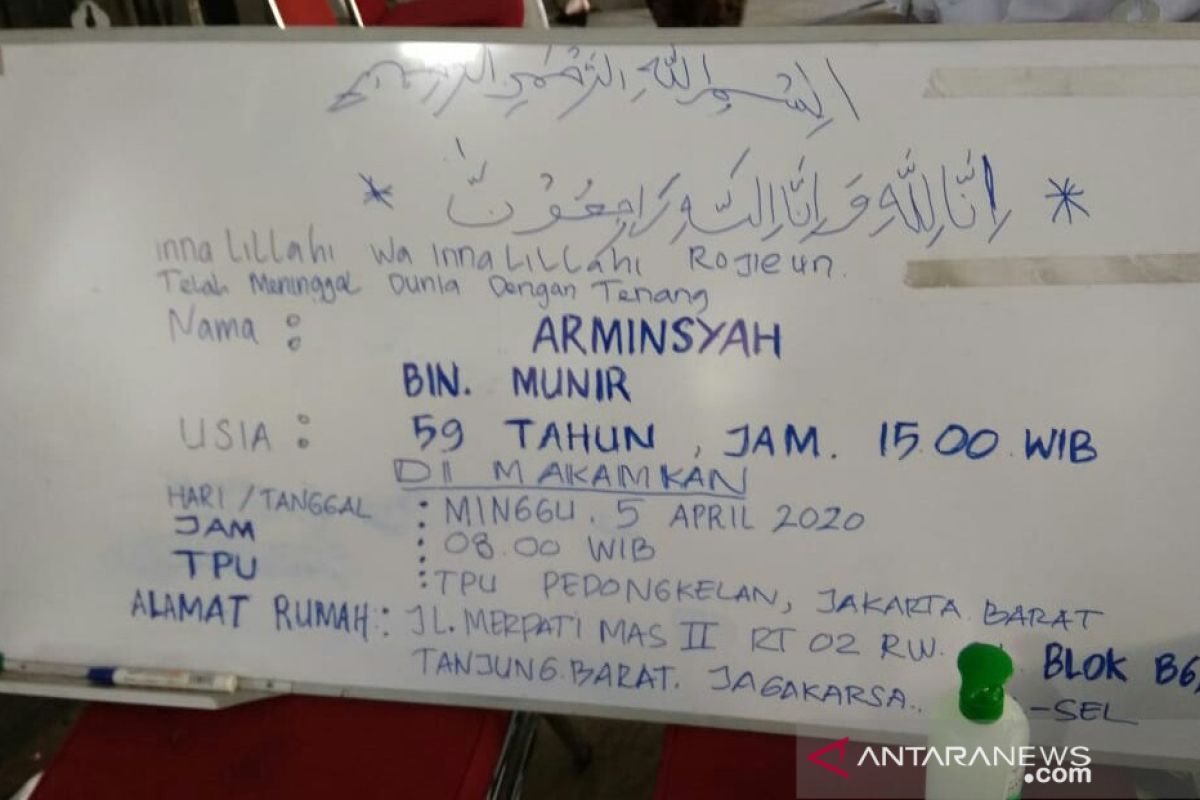 بسم الله الرحمن الرحيم
* اِنَّا لِلّٰهِ وَاِنَّا اِلَيْهِ رَاجِعُوْنَ *
Inna Lillahi Wa Inna Lillahi Rojieun.
Telah Meninggal Dunia Dengan Tenang
Nama : ARMINSYAH
BIN. MUNIR
USIA : 59 TAHUN, JAM. 15.00 WIB
DI MAKAMKAN
HARI/TANGGAL : MINGGU. 5 APRIL 2020
JAM : 08.00 WIB
TPU : TPU PEDONGKELAN, JAKARTA BARAT
ALAMAT RUMAH : JL. MERPATI MAS II RT 02 RW. BLOK B6,
TANJUNG BARAT. JAGAKARSA.. -SEL
ANTARANEWS
.com